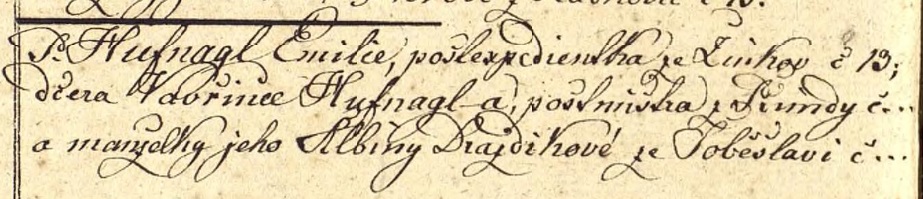 Sl. Hufnagl Emilie, poštexpedientka ze Žinkov č 13;
dcera Vavřince Hufnagl-a, poštmistra z Kundy č...
a manželky jeho Albiny Drazdikové ze Soběslavi č...